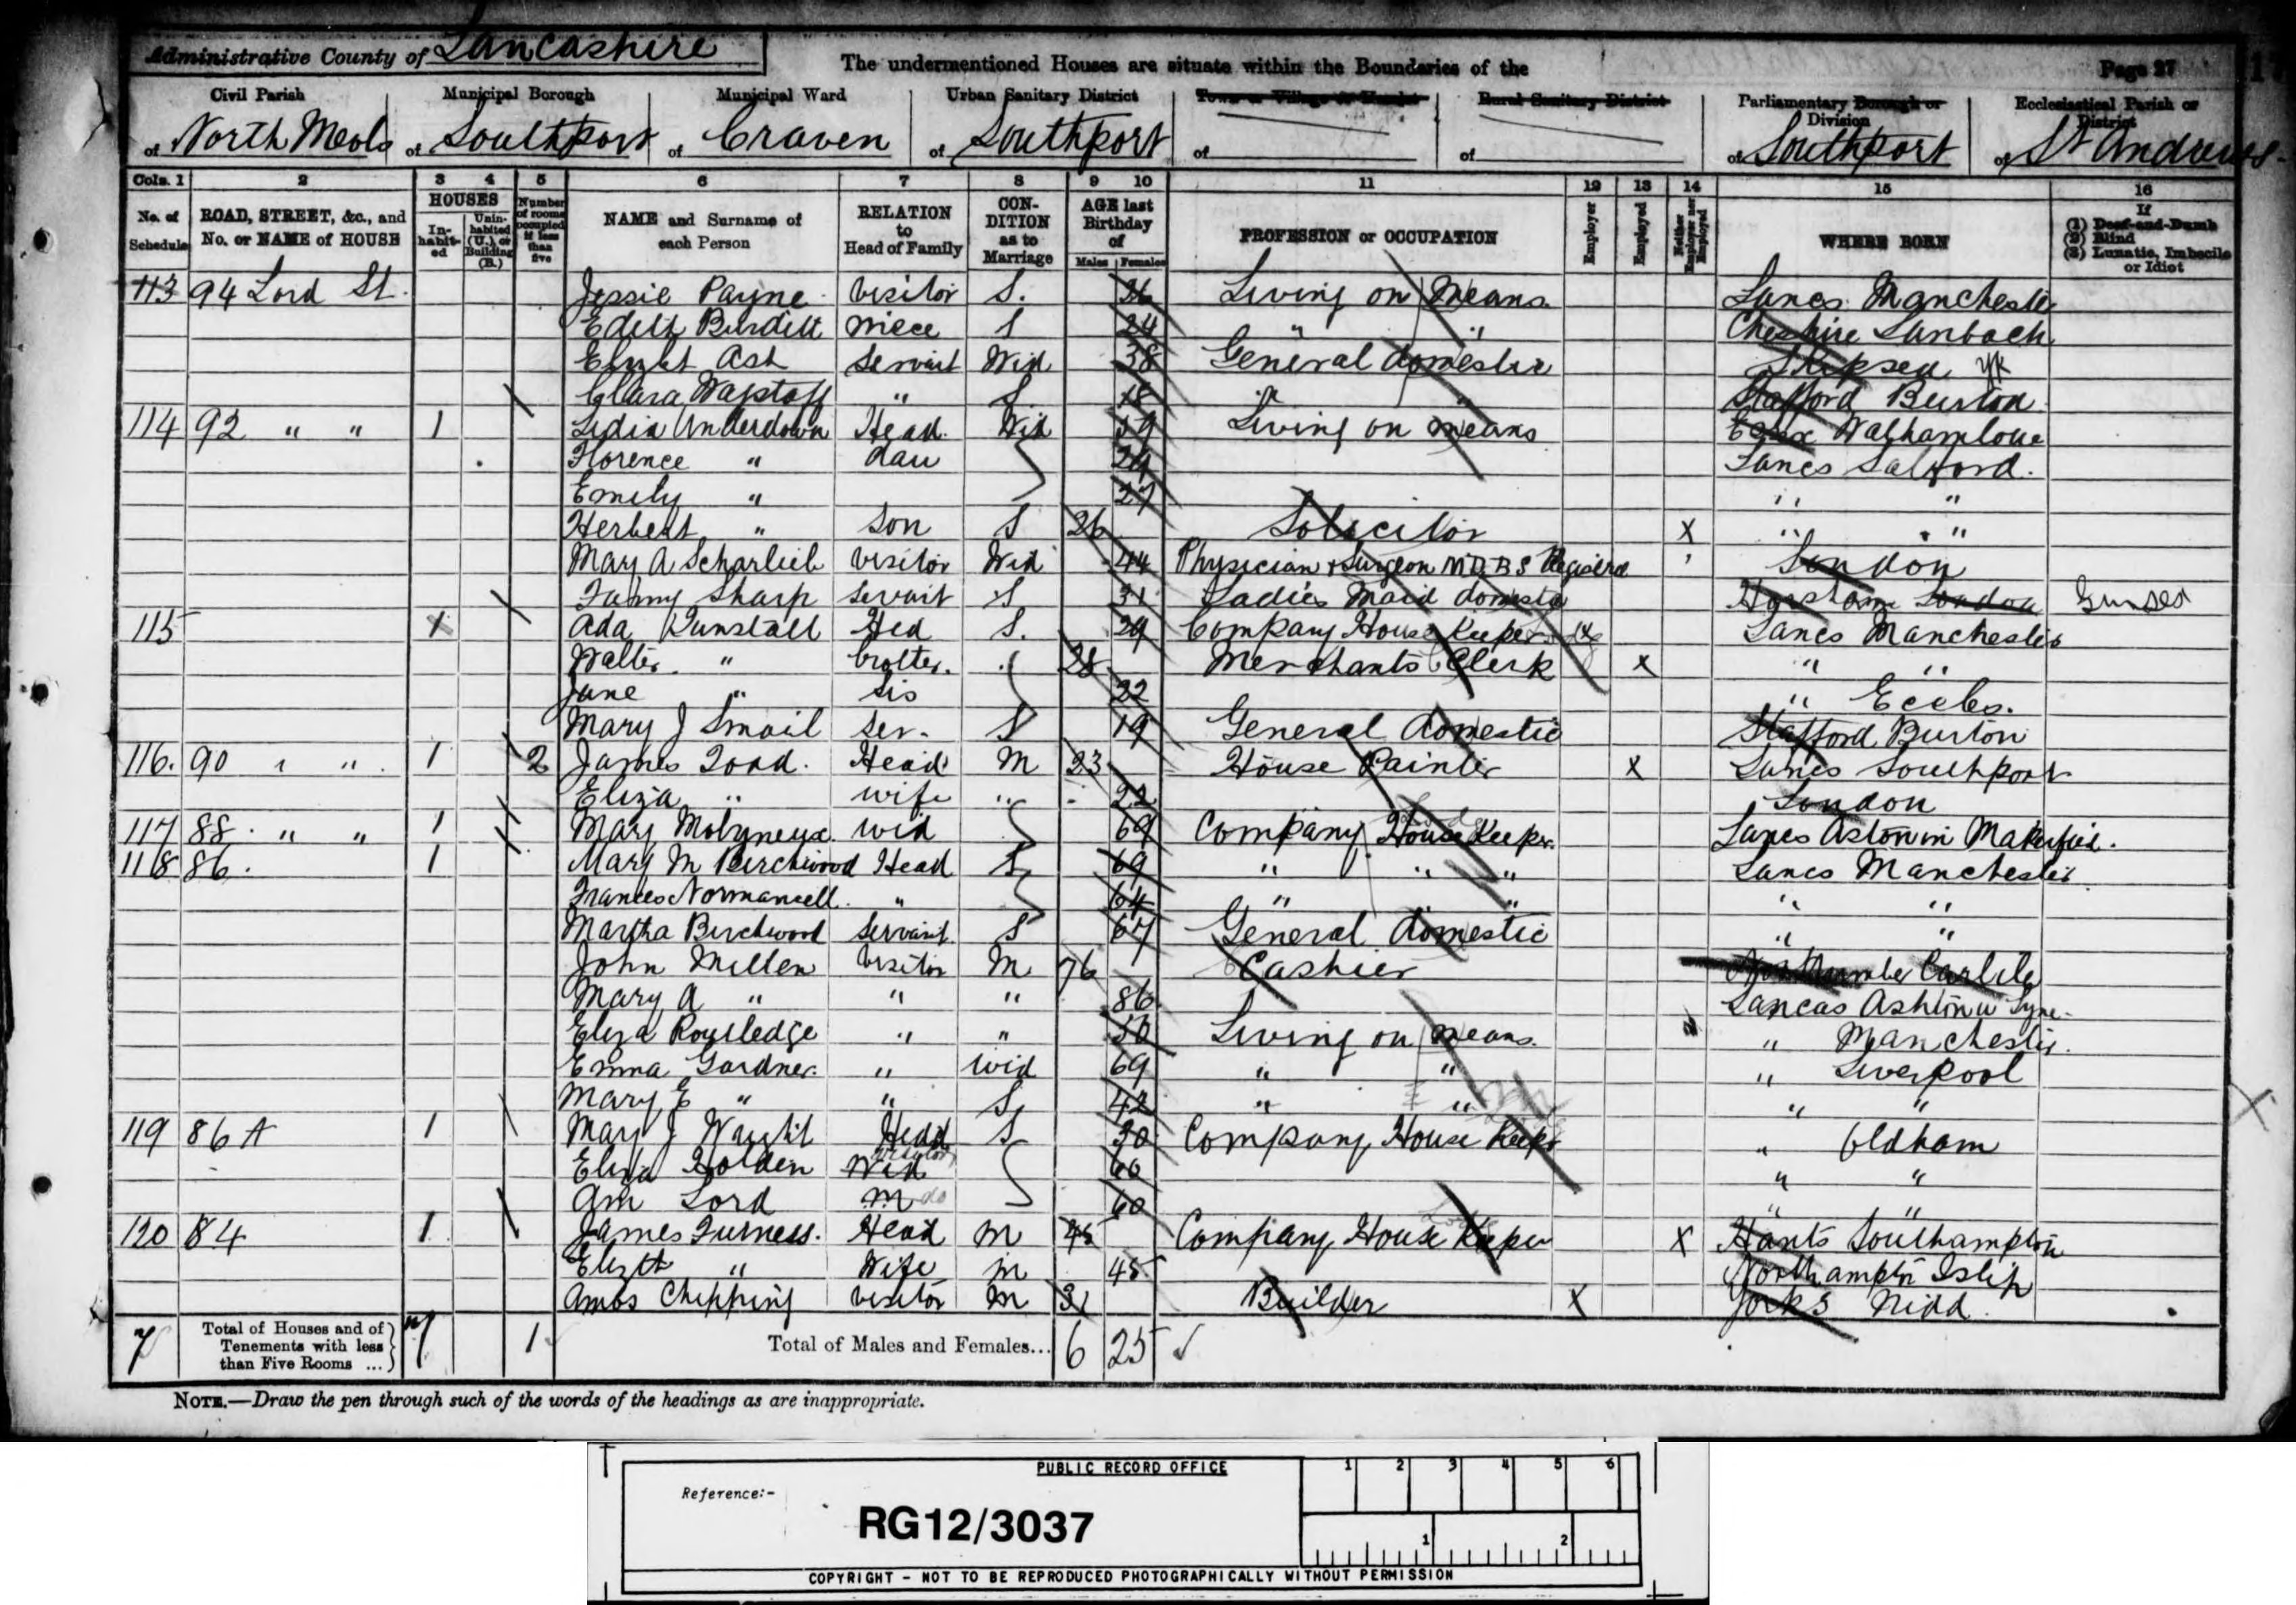 Administrative County of Lancashire
The undermentioned Houses are situate within the Boundaries of the
Page 27
Civil Parish of North Meols
Municipal Borough of Southport
Municipal Ward of Craven
Urban Sanitary District of Southport
Town or Village or Hamlet of
Rural Sanitary District of
Parliamentary Borough or Division of Southport
Ecclesiastical Parish or District of St Andrews
Cols. 1 2 3 4 5 6 7 8 9 10 11 12 13 14 15 16
No. of Schedule
ROAD, STREET, &c., and No. or NAME of HOUSE
HOUSES
In-habit-ed
Unin-habited (U.) or Building (B.)
Number of rooms occupied if less than five
NAME and Surname of each Person
RELATION to Head of Family
CON-DITION as to Marriage
AGE last Birthday of
Males Females
PROFESSION or OCCUPATION
Employer
Employed
Neither Employer nor Employed
WHERE BORN
If (1) Deaf-and-Dumb (2) Blind (3) Lunatic, Imbecile or Idiot
113 94 Lord St. Jessie Payne visitor S. 36 Living on Means. Lancs Manchester
Edith Burditt niece S 24 " " Cheshire Sanbach
Elizbt Ash Servant Wid 38 General domestic Skipsea Yk
Clara Wagstaff " S 18 " " Stafford Burton
114 92 " " 1 Lidia Underdown Head Wid 59 Living on means Essex Walhamstow
Florence " dau 29 Lancs Salford.
Emily " 27 " "
Herbert " Son S 26 Solicitor X " "
Mary A Scharlieb visitor Wid 44 Physician & Surgeon M.D. B S Regisered London
Fanny Sharp Servant S 31 Ladies Maid domestic Horsham London Sussex
115 1 Ada Tunstall Hed S. 29 Company House Keeper Lancs Manchester
Walter " brother. 28 Merchants Clerk X " "
Jane " Sis 22 " Eccles.
Mary J Smail Ser. S 19 General domestic Stafford Burton
116. 90 " " 1 2 James Toad. Head M 23 House Painter X Lancs Southport
Eliza " wife " 22 London
117 88 " " 1 Mary Molyneux. wid 69 Company House Keeper. Lancs Aston in Makerfield.
118 86. 1 Mary M Birchwood Head S 69 " " " Lancs Manchester
Frances Normansell. " 64 " " " "
Martha Birchwood Servant. S 67 General domestic " "
John Millen Visitor M 76 Cashier Northumber Carlile
Mary A " " " 86 Lancas Ashton u Lyne.
Eliza Routledge " " 50 Living on means. " Manchester.
Emma Gardner. " wid 69 " " " Liverpool
Mary E " " S 42 " " " "
119 86 A 1 Mary J Wright Head S 30 Company House Keepr " Oldham
Eliza Holden Wid visitor 66 " "
Ann Lord M do 60 " "
120 84 1 James Furness. Head M 45 Company House Keeper X Hants Southampton
Elizth " Wife m 45 Northampton Islip
Amos Chipping visitor M 31 Builder X Yorks Nidd
7 Total of Houses and of Tenements with less than Five Rooms ... 7 1 Total of Males and Females... 6 25
NOTE.—Draw the pen through such of the words of the headings as are inappropriate.
PUBLIC RECORD OFFICE
1 2 3 4 5 6
Reference:-
RG12/3037
1 2
COPYRIGHT - NOT TO BE REPRODUCED PHOTOGRAPHICALLY WITHOUT PERMISSION